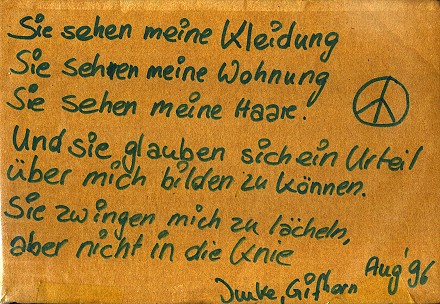 Sie sehen meine Kleidung
Sie sehren meine Wohnung
Sie sehen meine Haare.
Und sie glauben sich ein Urteil
über mich bilden zu können.
Sie zwingen mich zu lächeln,
aber nicht in die Knie
Gifhorn Aug '96